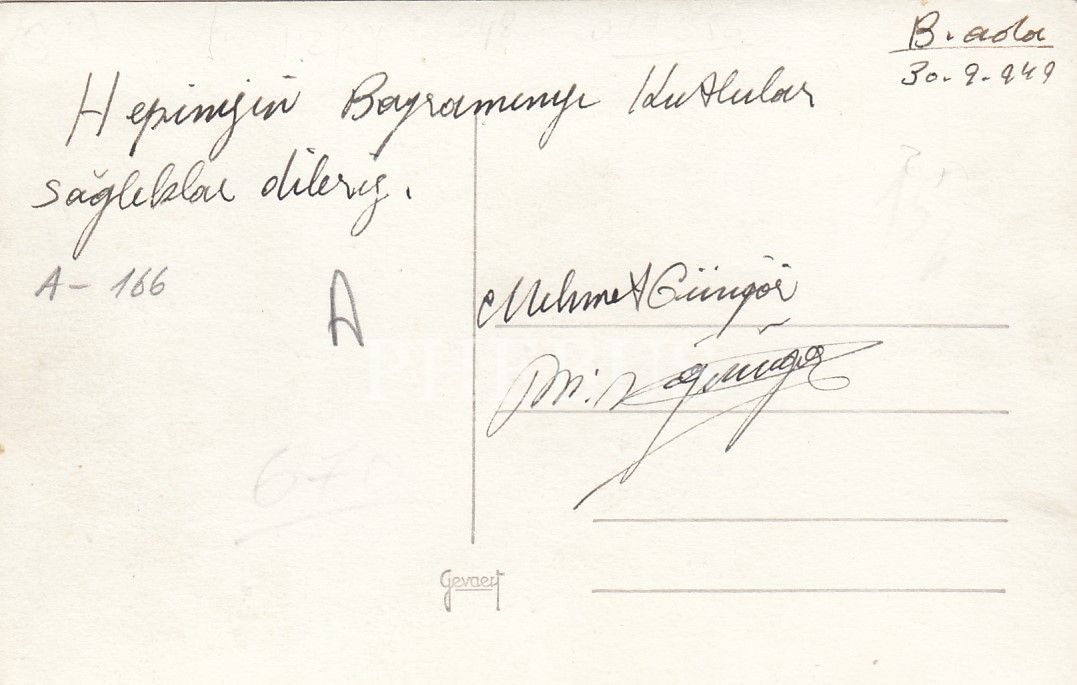 B. ada
30.9.949
Hepinizin Bayramınızı Kutlular
sağlıklar dileriz.
A - 166
A
Mehmet Güngör
M. Güngör
67
Gevaert